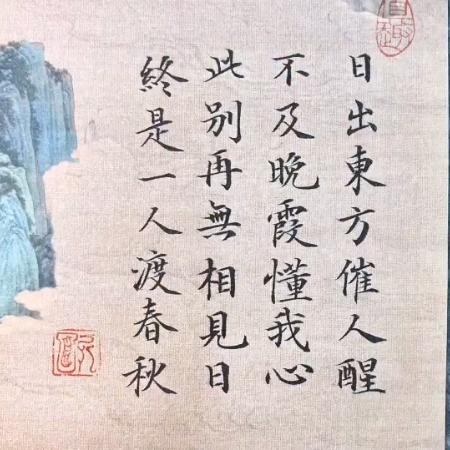 日出東方催人醒
不及晚霞懂我心
此別再無相見日
終是一人渡春秋